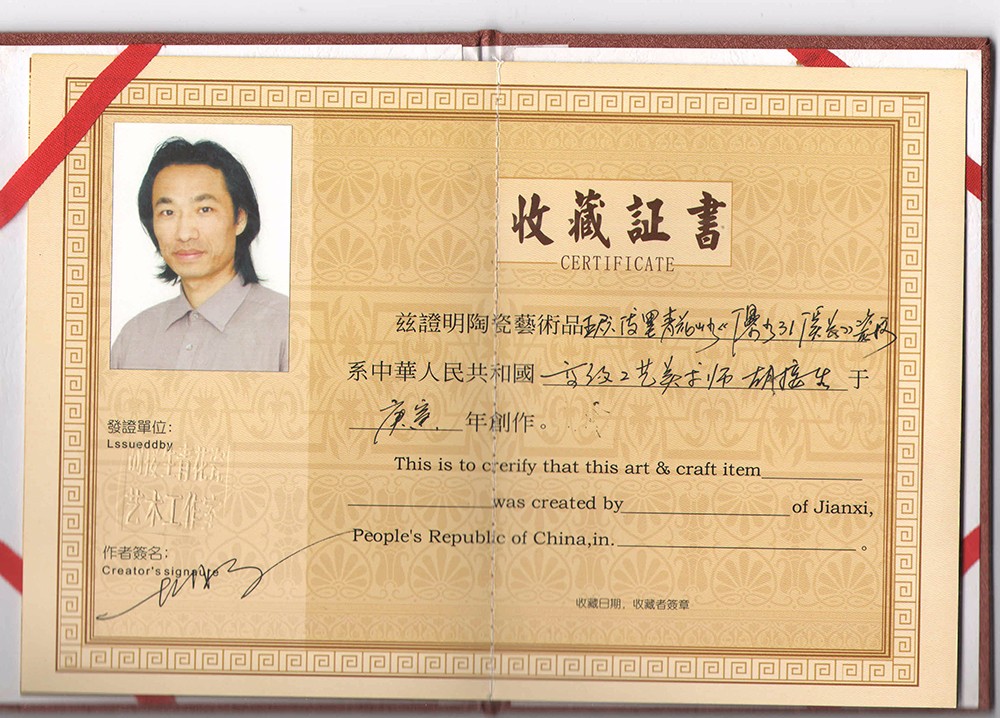 收藏証書
CERTIFICATE
兹證明陶瓷藝術品
系中華人民共和國 高级工艺美术师 胡接生 于
庚寅 年創作。
發證單位：
Lssueddby
艺术工作室
This is to crerify that this art & craft item
was created by of Jianxi,
作者簽名：
People's Republic of China,in. 。
Creator's signature
收藏日期，收藏者簽章